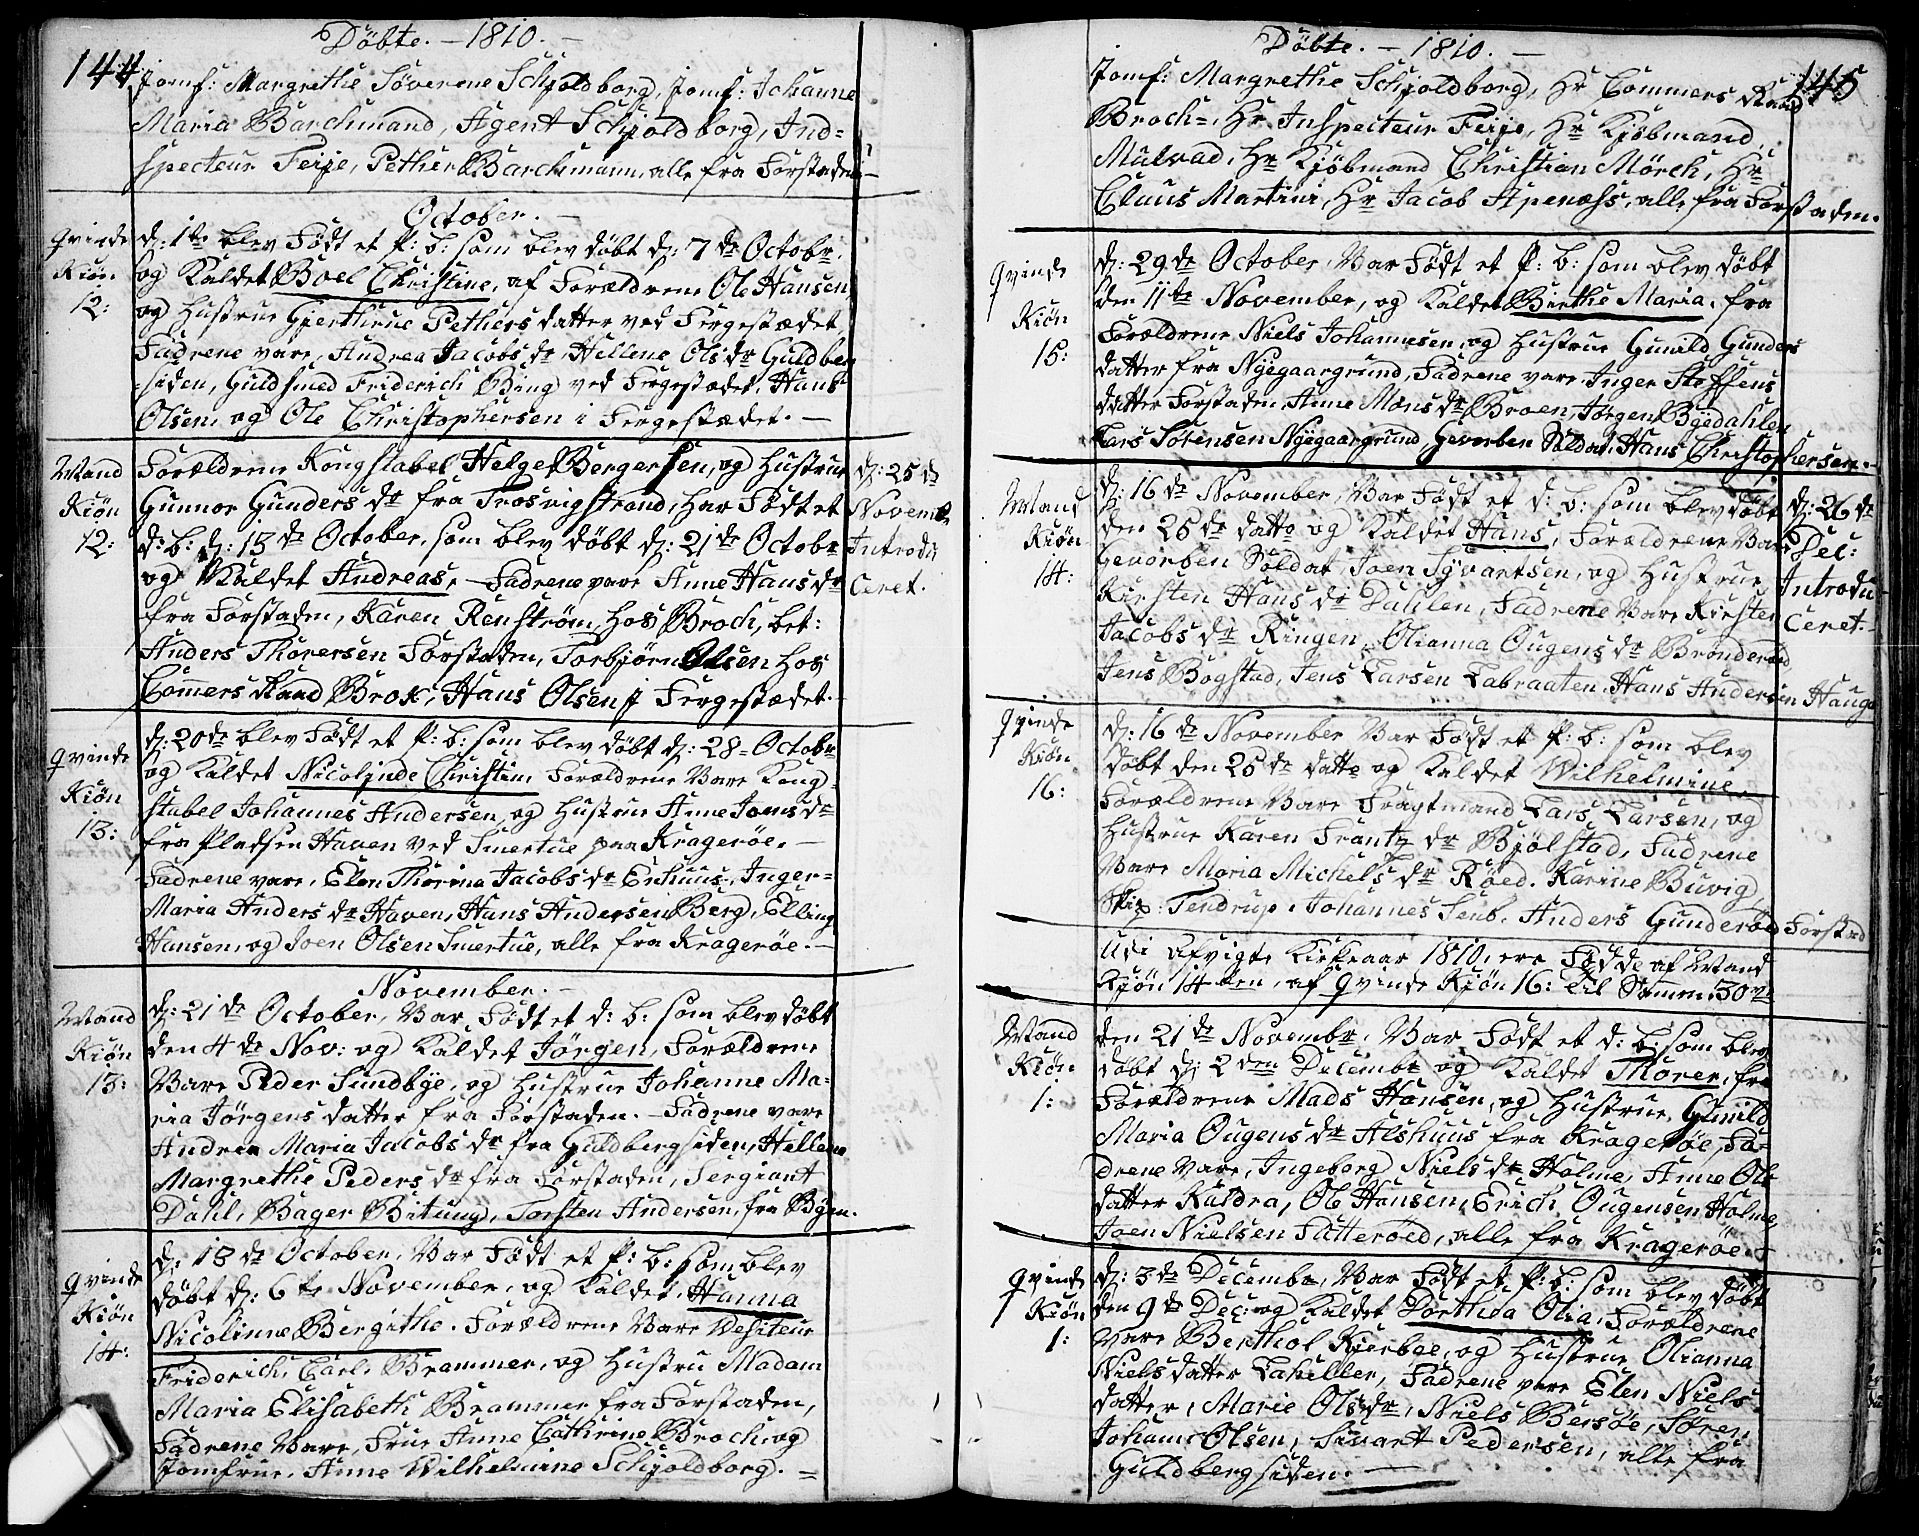 Döbte. - 1810. -
144
Jomf: Margrethe Söverene Schjoldborg, Jomf: Johanne
Maria Barchmand, Agent Schjoldborg, Ind=
specteur Feije, Pether Barchmann, alle fra Forstaden
October. -
Qvinde Kiön 12:
dj: 1te blev Födt et P: b: som blev döbt dj: 7de Octobr.
og Kaldet Boel Christine, af Forældrene Ole Hansen
og Hustrue Gjerthrue Pethersdatter ved Fergestædet,
Fadrene vare, Andrea Jacobsdr, Hellene Olsdr Guldberg
=siden, Guldsmed Friderich Bing ved Fergestædet, Hans
Olsen, og Ole Christophersen i Fergestædet. -
Mand Kiön 12:
Forældrene Kongstabel Helge Bergersen, og Hustrue
Gunnor Gundersdr fra Trosvigstrand, har Födt et
d: b: dj: 13de October, som blev döbt dj: 21de Octobr
og Kaldet Andreas, - Fadrene vare Anne Hansdr
fra Forstaden, Karen Renström, hos Broch, bet:
Anders Thorersen Forstaden, Torbjörn Olsen hos
Comers Raad Brok, Hans Olsen i Fergestædet. -
dj: 25de
Novembr
Introdu
Ceret.
Qvinde Kiön 13:
dj: 20de blev Födt et P: b: som blev döbt dj: 28 = Octobr
og Kaldet Nicolinde Christin, Forældrene Vare Kong=
stabel Johannes Andersen, og Hustrue Anne Jonsdr
fra Pladsen Haven ved Smertue paa Kragerøe. -
Fadrene vare, Elen Thorina Jacobsdr Enhuus, Inger=
Maria Andersdr Haven, Hans Andersen Berg, Elling
Hansen, og Joen Olsen Smertue, alle fra Kragerøe. -
November. -
Mand Kiön 13:
dj: 21de October, Var Födt et d: b: som blev döbt
den 4de Nov: og Kaldet Jörgen, Forældrene
Vare Peder Sundbye, og Hustrue Johanne Ma=
ria Jörgensdatter fra Forstaden. - Fadrene vare
Andrea Maria Jacobsdr fra Guldbergsiden, Hellene
Margrethe Pedersdr fra Forstaden, Sergiant
Dahl, Bager Bitung, Torsten Andersen, fra Byen.
Qvinde Kiön 14:
dj: 13de October, Var Födt et P: b: som blev
döbt dj: 6te November, og Kaldet, Hanna
Nicolinne Bergithe. Forældrene Vare Vesiteur
Friderich, Carl, Brammer, og Hustru Madam
Maria Elisabeth Brammer fra Forstaden,
Fadrene Vare, Frue Anne Cathrine Broch, og
Jomfrue. Anne Wilhelmine Schjoldborg. =
Döbte. - 1810. -
145
Jomf: Margrethe Schjoldborg, Hr Commers Raad
Broch=, Hr Inspecteur Feije, Hr Kjöbmand
Mulvad, Hr Kjöbmand Christian Mörch, Hr
Claus Martini, Hr Jacob Apenæss, alle fra Forstaden.
Qvinde Kiön 15:
dj: 29de October, Var Födt et P: b: som blev döbt
den 11te November, og Kaldet Birthe Maria, fra
Forældrene Niels Johannesen, og Hustrue Gunild Gunders
datter fra Nyegaargrund, Fadrene vare Inger Steffens
datter Forstaden, Anne Monsdr Broen, Jörgen Byedahlen
Lars Sörensen Nyegaargrund, Gevorben Soldat, Hans Christophersen. -
Mand Kiön 14:
dj: 16de November, Var Födt et d: b: som blev döbt
den 25de datto og Kaldet Hans, Forældrene Vare
Gevorben Soldat Joen Syvartsen, og Hustrue
Kirsten Hansdr Dahlen, Fadrene Vare Kirsten
Jacobsdr Ringen, Olianna Ougensdr Bronderød
Jens Bogstad, Jens Larsen Labraaten, Hans Andersen Hauge
dj: 26de
Dec:
Introdu
Ceret. -
Qvinde Kiön 16:
dj: 16de November Var Födt et P: b: som blev
döbt den 25de datto og Kaldet Wilhelmine,
Forældrene Vare Fragtmand Lars Larsen, og
Hustrue Karen Frantzdr Bjölstad, Fadrene
Vare Maria Michelsdr Röed. Karine Buvig,
Skip: Tendrup, Johannes Leub. Anders Gunderöd Forstad
Udi Afvigte Kirkeaar 1810, ere Födde af Mand
Kjön 14ten, af Qvinde Kjön 16: til Sammen 30ve
Mand Kiön 1:
den 21de Novembr, Var Födt et d: b: som blev
döbt dj: 2den Decembr og Kaldet Thorer, fra
Forældrene Mads Hansen, og Hustrue Gunild
Maria Ougensdr Alshuus fra Kragerøe, Fa=
drene Vare, Ingeborg Nielsdr Holme, Anne Ols
datter Kaldra, Ole Hansen, Erich Ougensen Holme
Joen Nielsen Fatteröed, alle fra Kragerøe. -
Qvinde Kiön 1:
dj: 3de Decembr, Var Födt et P: b: som blev döbt
den 9de Dec: og Kaldet Dorthea Olia, Forældrene
Vare Berthol Kierboe, og Hustrue Olianna
Nielsdatter Lahellen, Fadrene vare Elen Niels=
datter, Marie Olsdr, Niels Bersöe, Sören
Johans Olsen, Sivart Pedersen, alle fra
Guldbergsiden. -